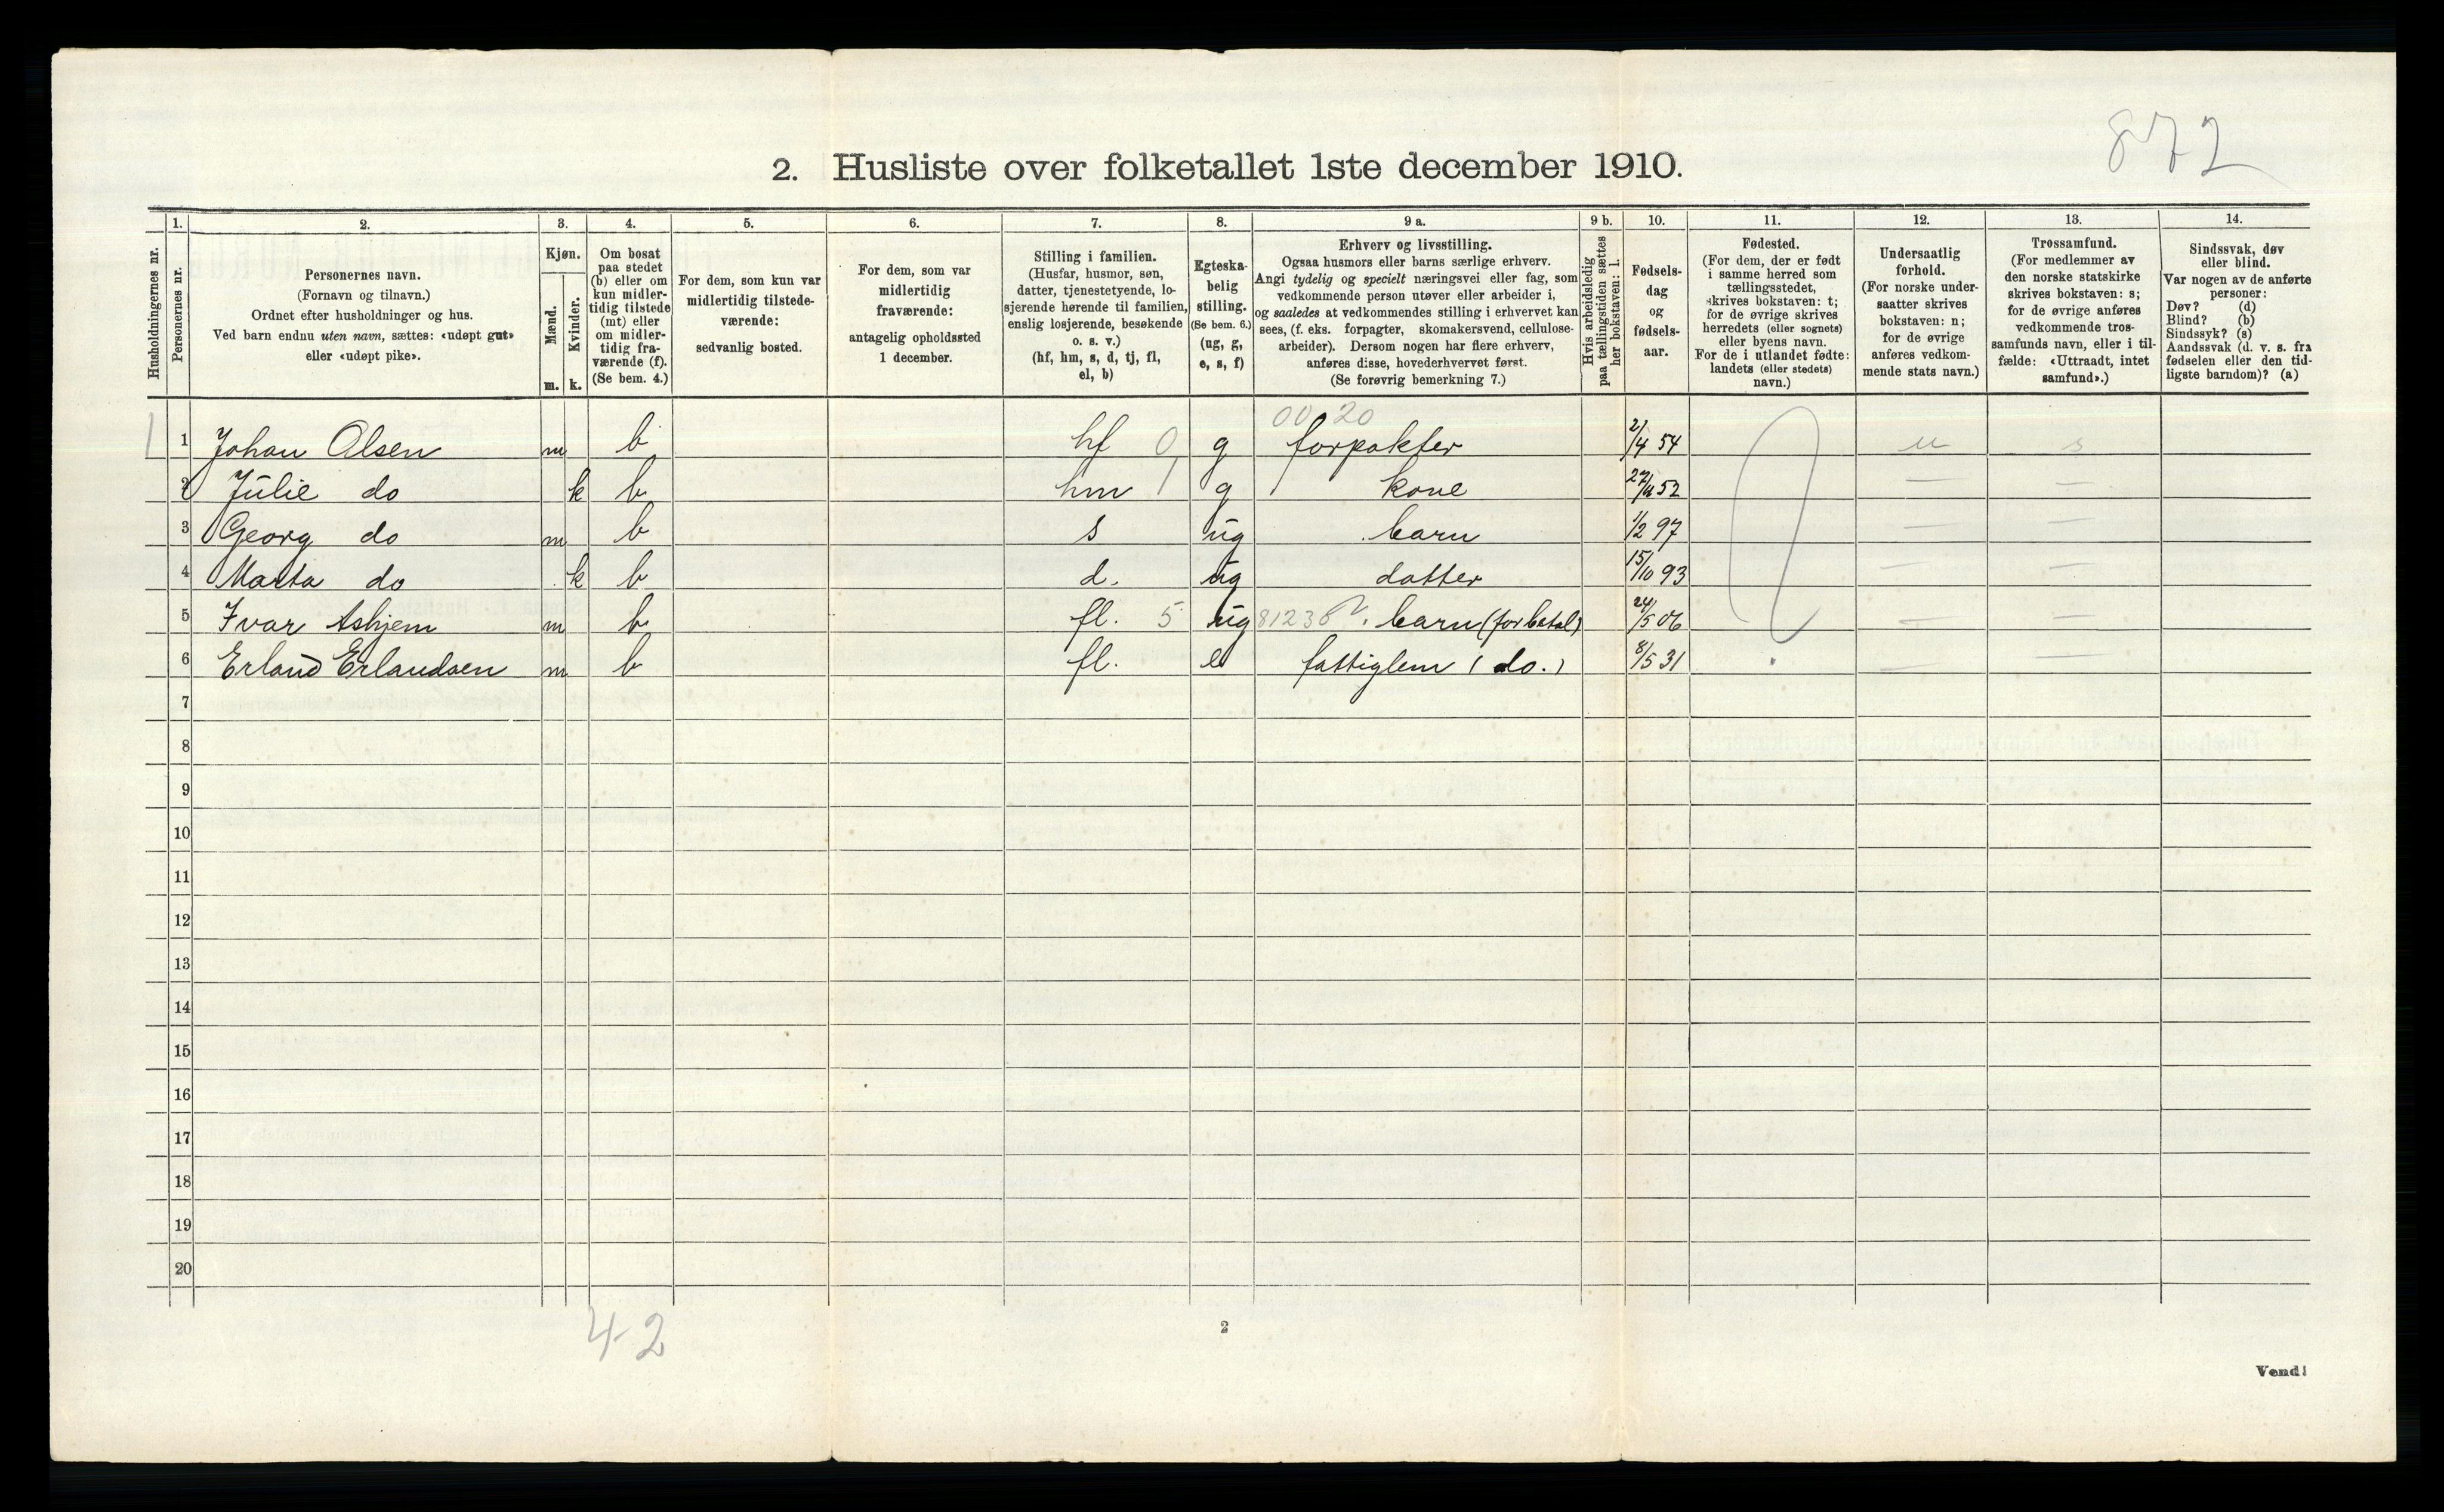 872
2. Husliste over folketallet 1ste december 1910.
1. 2. 3. 4. 5. 6. 7. 8. 9 a. 9 b. 10. 11. 12. 13. 14.
Husholdningernes nr.
Personernes nr.
Personernes navn.
(Fornavn og tilnavn.)
Ordnet efter husholdninger og hus.
Ved barn endnu uten navn, sættes: «udøpt gut»
eller «udøpt pike».
Kjøn.
Mænd.
m.
Kvinder.
k.
Om bosat
paa stedet
(b) eller om
kun midler-
tidig tilstede
(mt) eller
om midler-
tidig fra-
værende (f).
(Se bem. 4.)
For dem, som kun var
midlertidig tilstede-
værende:
sedvanlig bosted.
For dem, som var
midlertidig
fraværende:
antagelig opholdssted
1 december.
Stilling i familien.
(Husfar, husmor, søn,
datter, tjenestetyende, lo-
sjerende hørende til familien,
enslig losjerende, besøkende
o. s. v.)
(hf, hm, s, d, tj, fl,
el, b)
Egteska-
belig
stilling.
(Se bem. 6.)
(ug, g,
e, s, f)
Erhverv og livsstilling.
Ogsaa husmors eller barns særlige erhverv.
Angi tydelig og specielt næringsvei eller fag, som
vedkommende person utøver eller arbeider i,
og saaledes at vedkommendes stilling i erhvervet kan
sees, (f. eks. forpagter, skomakersvend, cellulose-
arbeider). Dersom nogen har flere erhverv,
anføres disse, hovederhvervet først.
(Se forøvrig bemerkning 7.)
Hvis arbeidsledig
paa tællingstiden sættes
her bokstaven: l.
Fødsels-
dag
og
fødsels-
aar.
Fødested.
(For dem, der er født
i samme herred som
tællingsstedet,
skrives bokstaven: t;
for de øvrige skrives
herredets (eller sognets)
eller byens navn.
For de i utlandet fødte:
landets (eller stedets)
navn.)
Undersaatlig
forhold.
(For norske under-
saatter skrives
bokstaven: n;
for de øvrige
anføres vedkom-
mende stats navn.)
Trossamfund.
(For medlemmer av
den norske statskirke
skrives bokstaven: s;
for de øvrige anføres
vedkommende tros-
samfunds navn, eller i til-
fælde: «Uttraadt, intet
samfund».)
Sindssvak, døv
eller blind.
Var nogen av de anførte
personer:
Døv? (d)
Blind? (b)
Sindssyk? (s)
Aandssvak (d. v. s. fra
fødselen eller den tid-
ligste barndom)? (a)
00 20
1 1 Johan Olsen m b hf 0 g forpakter 2/4 54 n s
2 Julie do k b hm 1 g kone 52 — —
3 Georg do m b s ug barn 1/2 97 — —
4 Marta do k b d. ug datter 15/10 93 — —
5 Ivar Ashjem m b fl. 5 ug barn (for betal) 24/5 06 — —
6 Erland Erlandsen m b fl. e fattiglem (do.) 8/5 31 — —
7
8
9
10
11
12
13
14
15
16
17
18
19
20
4-2
2
Vend!